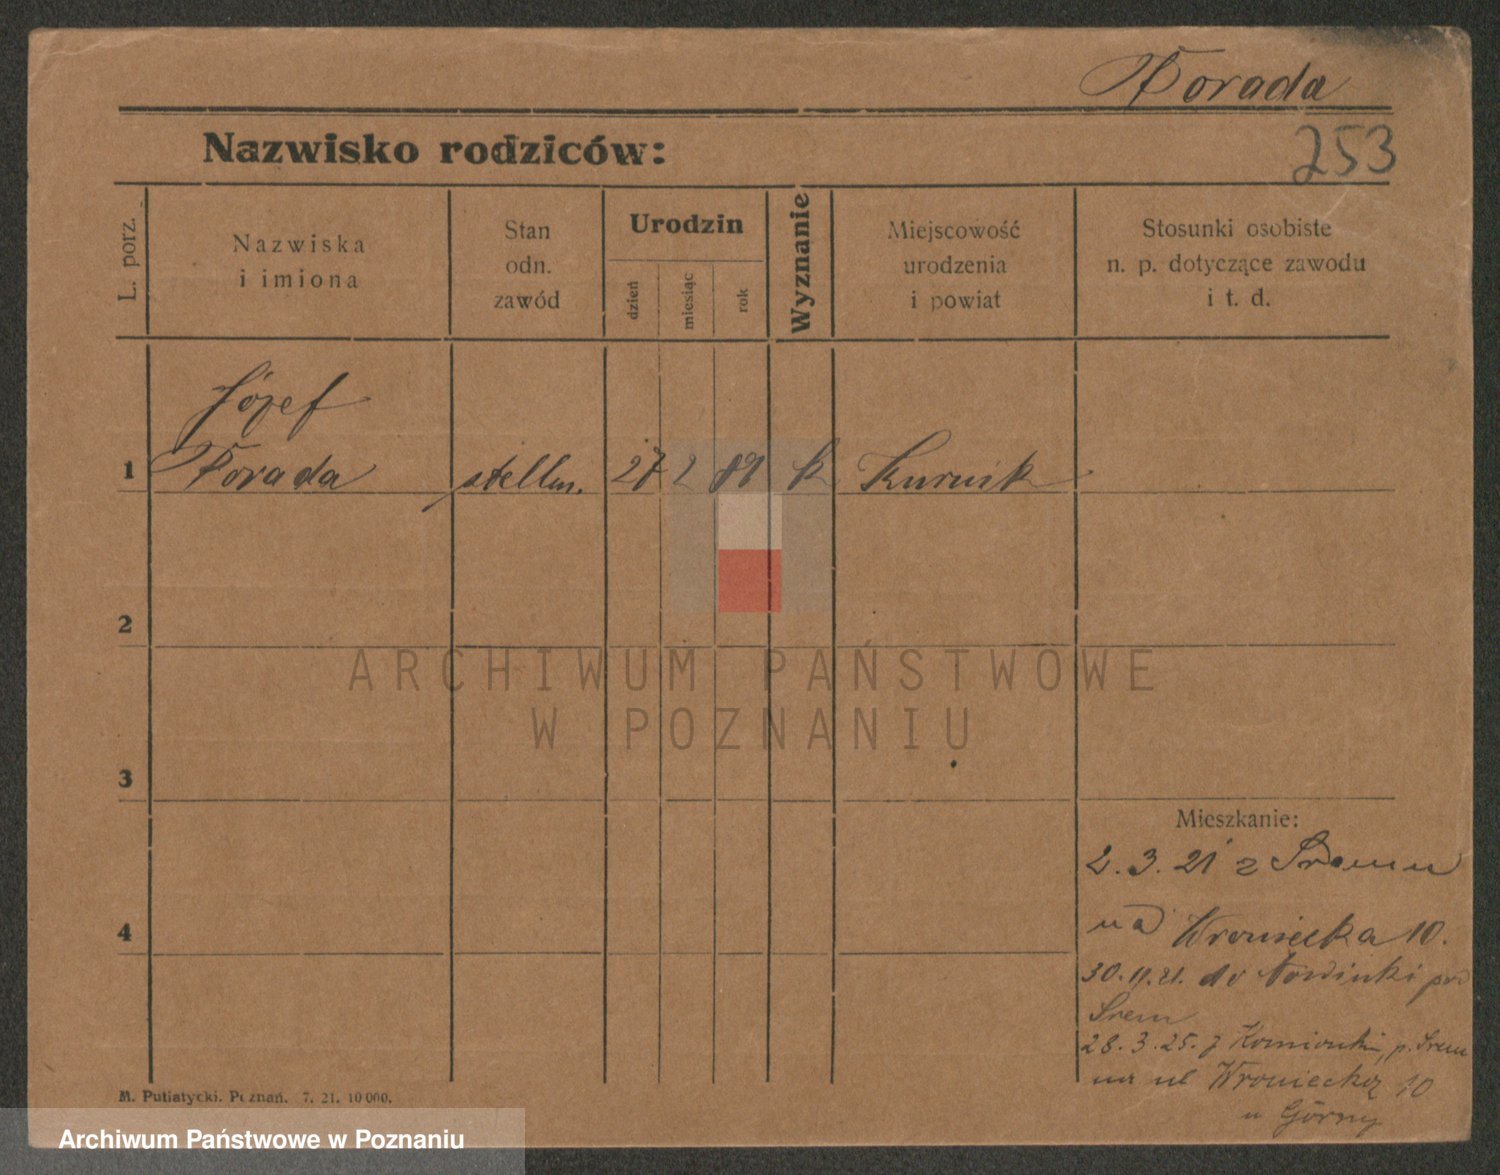 Porada
Nazwisko rodziców:
253
L. porz.
Nazwiska
i imiona
Stan
odn.
zawód
Urodzin
dzień
miesiąc
rok
Wyznanie
Miejscowość
urodzenia
i powiat
Stosunki osobiste
n. p. dotyczące zawodu
i t. d.
Józef
1 Porada stellm. 27 2 89 k Kurnik
2
ARCHIWUM PAŃSTWOWE
W POZNANIU
3
Mieszkanie:
2.3.21 z Śremu
na Wroniecka 10.
4
30.11.21. do Nowinki pod
Śrem
28.3.25. z p. Śrem
na ul Wroniecką 10
u Górny
M. Putiatycki. Poznań. 7. 21. 10 000.
Archiwum Państwowe w Poznaniu